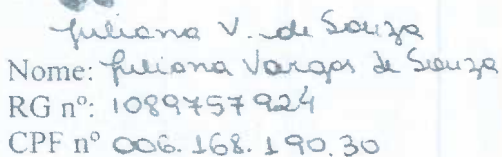 Juliana V. de Souza
Nome: Juliana Vargas de Souza
RG nº: 1089757924
CPF nº 006.168.190.30